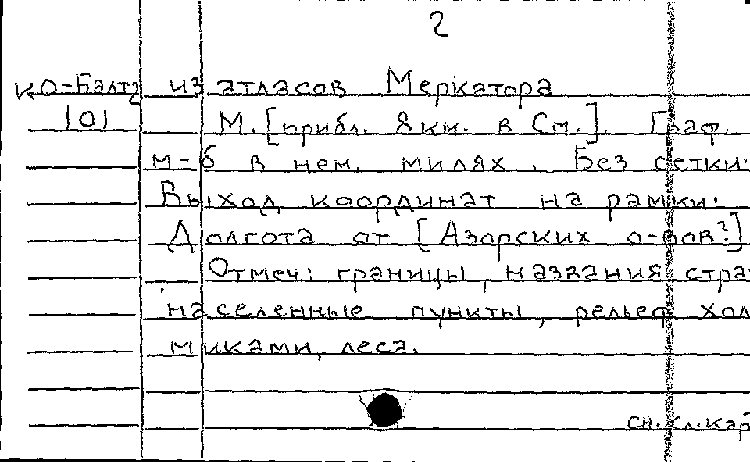 2
КО-Балт из атласов Меркатора
101 М.[прибл. 8 км. в См.]. Граф.
м-б в нем. милях. Без сетки.
Выход координат на рамки.
Долгота от [Азорских о-вов?]
Отмеч: границы, названия стра
населенные пункты, рельеф хол
миками, леса.
см. кл. кар